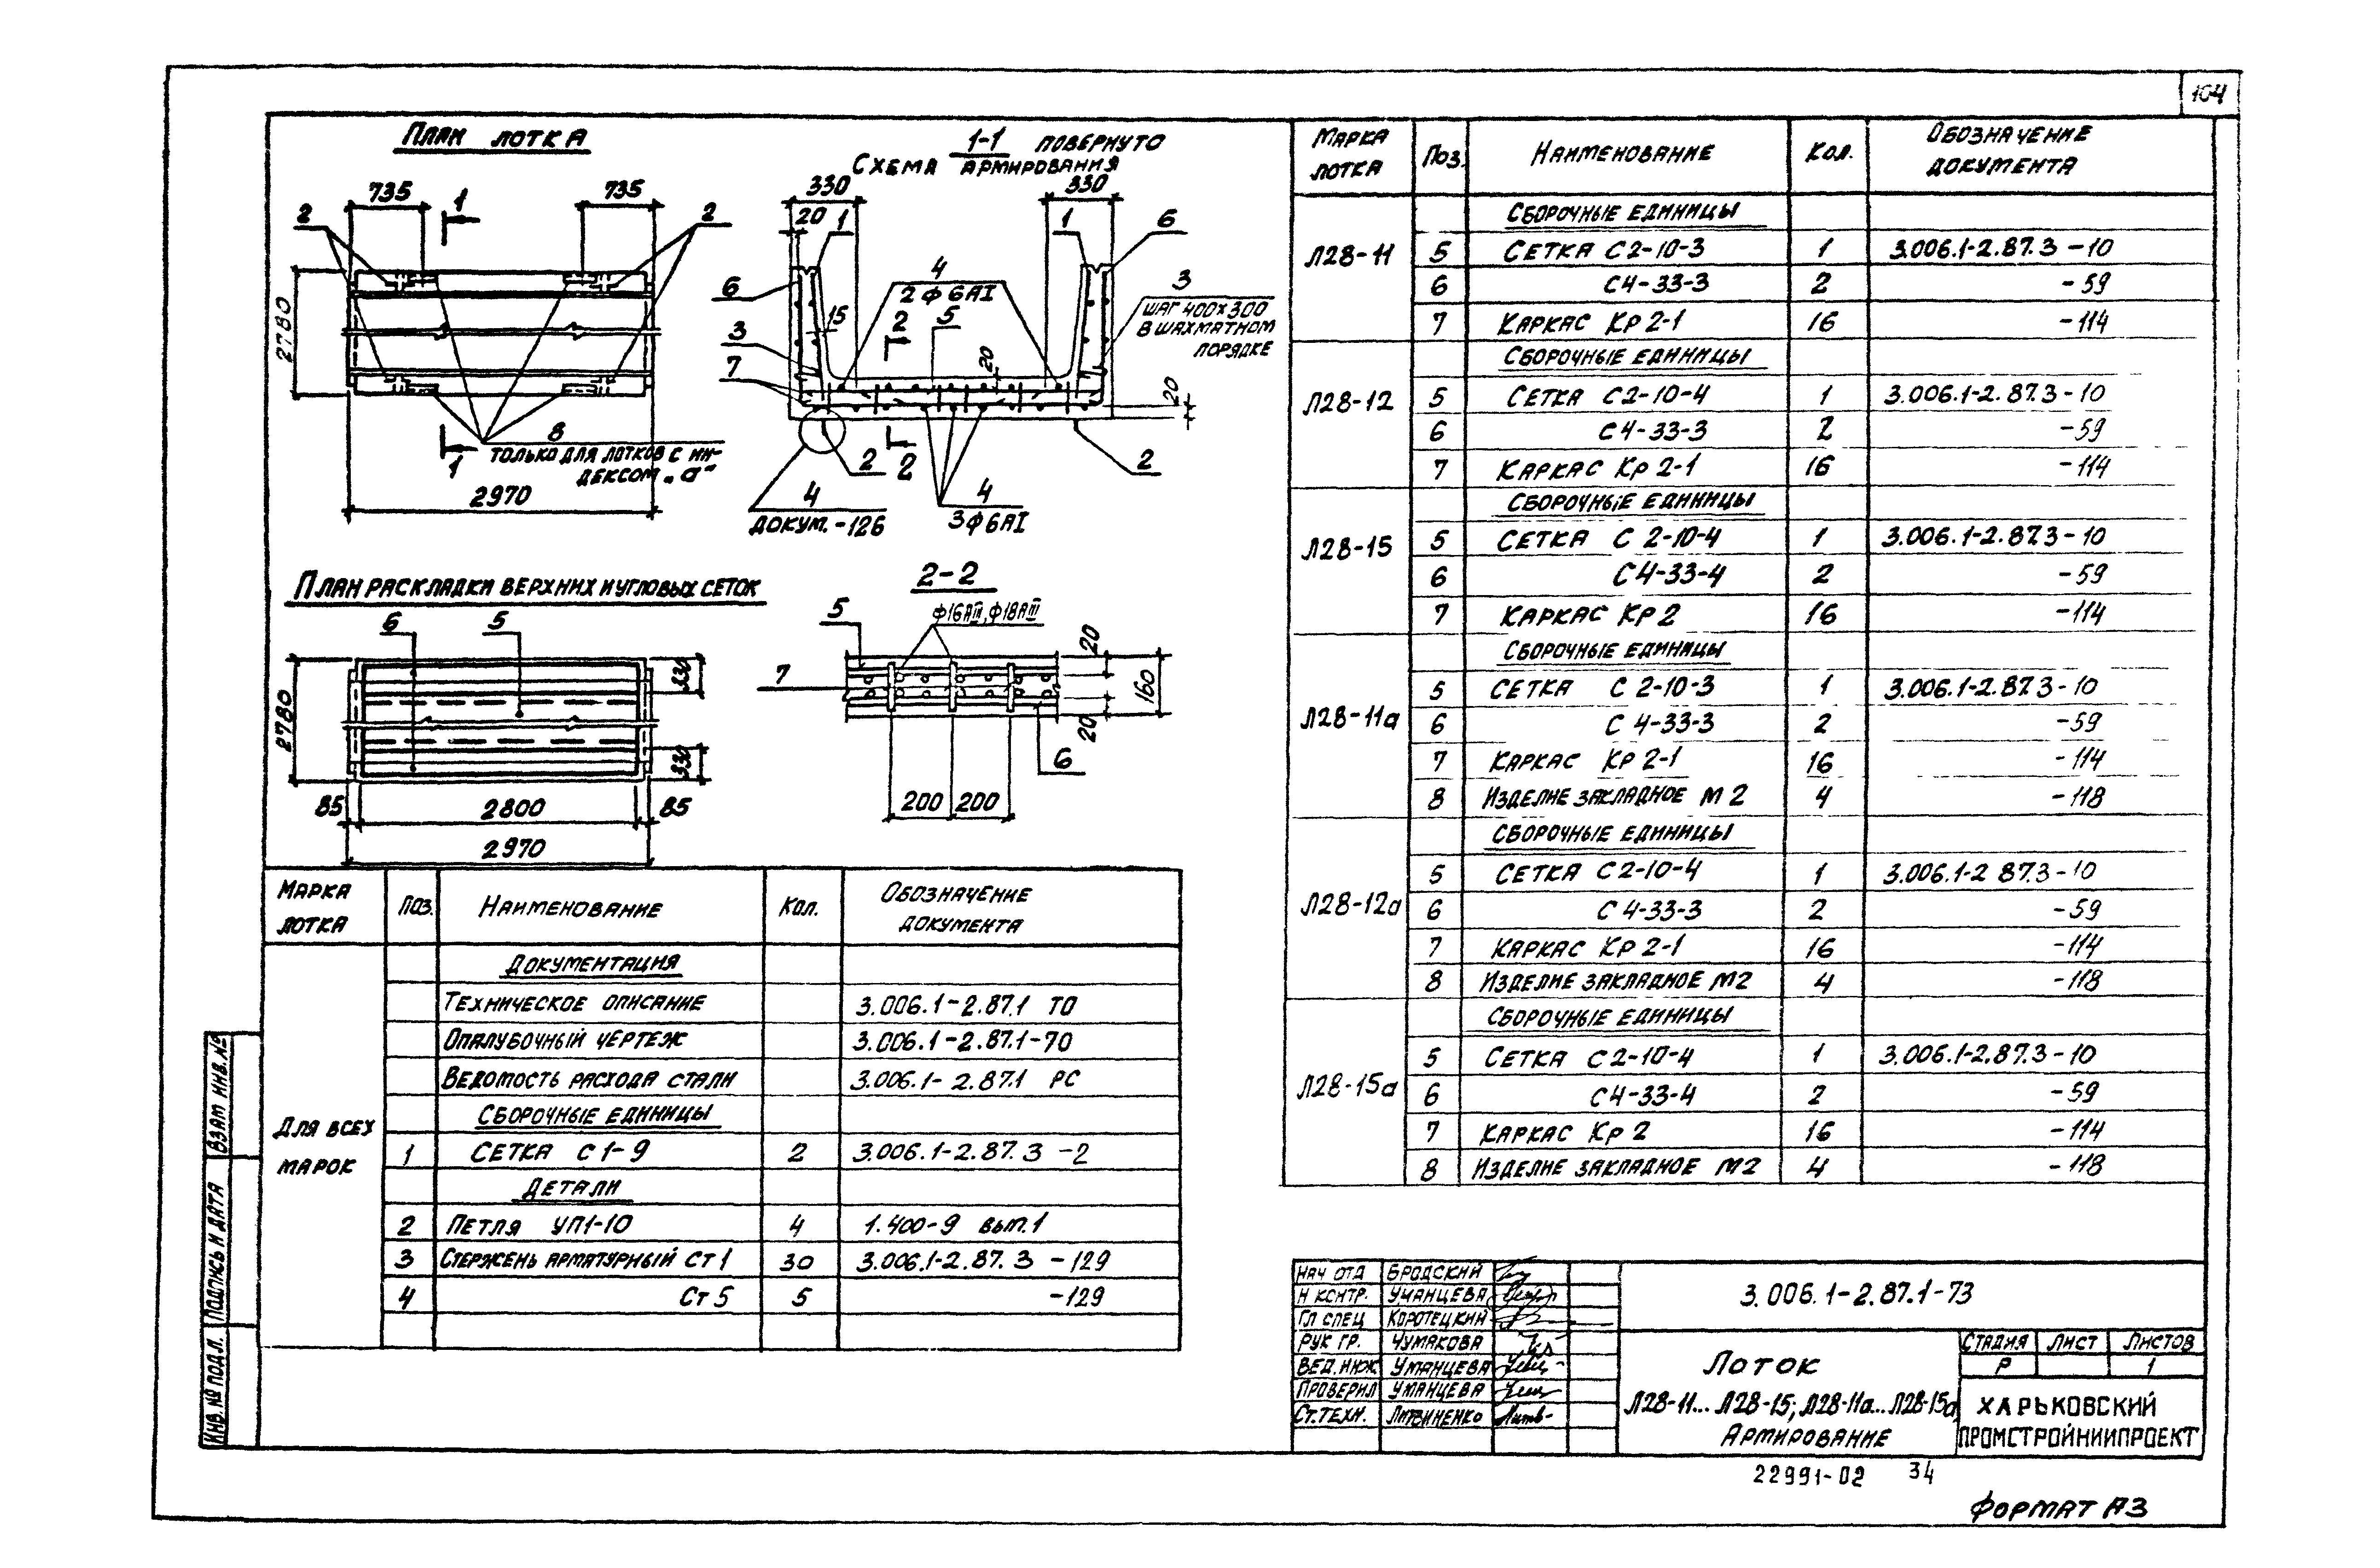 104
План лотка
735
735
1
2
2
2780
8
только для лотков с ин-
дексом „а"
1
2970
1-1 повернуто
Схема армирования
330
330
20
1
1
6
4
2ф6АI
6
3
шаг 400х300
в шахматном
порядке
15
2
5
3
20
7
20
2
2
2
4
докум. -126
4
3ф6АI
План раскладки верхних и угловых сеток
6
5
2780
330
330
85
2800
85
2970
2-2
5
ф16АIII, ф18АIII
20
7
160
20
6
200
200
Марка лотка
Поз.
Наименование
Кол.
Обозначение документа
Для всех марок
Документация
Техническое описание 3.006.1-2.87.1 ТО
Опалубочный чертеж 3.006.1-2.87.1-70
Ведомость расхода стали 3.006.1-2.87.1 РС
Сборочные единицы
1 Сетка С1-9 2 3.006.1-2.87.3 -2
Детали
2 Петля УП1-10 4 1.400-9 вып.1
3 Стержень арматурный Ст1 30 3.006.1-2.87.3 -129
4 Ст5 5 -129
Марка лотка
Поз.
Наименование
Кол.
Обозначение документа
Л28-11
Сборочные единицы
5 Сетка С2-10-3 1 3.006.1-2.87.3 -10
6 С4-33-3 2 -59
7 Каркас Кр2-1 16 -114
Л28-12
Сборочные единицы
5 Сетка С2-10-4 1 3.006.1-2.87.3-10
6 С4-33-3 2 -59
7 Каркас Кр2-1 16 -114
Л28-15
Сборочные единицы
5 Сетка С 2-10-4 1 3.006.1-2.87.3-10
6 С4-33-4 2 -59
7 Каркас Кр2 16 -114
Л28-11а
Сборочные единицы
5 Сетка С 2-10-3 1 3.006.1-2.87.3-10
6 С 4-33-3 2 -59
7 Каркас Кр2-1 16 -114
8 Изделие закладное М2 4 -118
Л28-12а
Сборочные единицы
5 Сетка С2-10-4 1 3.006.1-2 87.3-10
6 С4-33-3 2 -59
7 Каркас Кр2-1 16 -114
8 Изделие закладное М2 4 -118
Л28-15а
Сборочные единицы
5 Сетка С2-10-4 1 3.006.1-2.87.3-10
6 С4-33-4 2 -59
7 Каркас Кр2 16 -114
8 Изделие закладное М2 4 -118
Взам инв.№
Подпись и дата
Инв. № подл.
Нач отд Бродский
Н контр. Уманцева
Гл спец Коротецкий
Рук гр. Чумакова
Вед. инж Уманцева
Проверил Уманцева
Ст. техн. Литвиненко
3.006.1-2.87.1-73
Лоток
Л28-11... Л28-15; Л28-11а... Л28-15а
Армирование
Стадия Лист Листов
Р 1
Харьковский
Промстройниипроект
22991-02 34
Формат А3